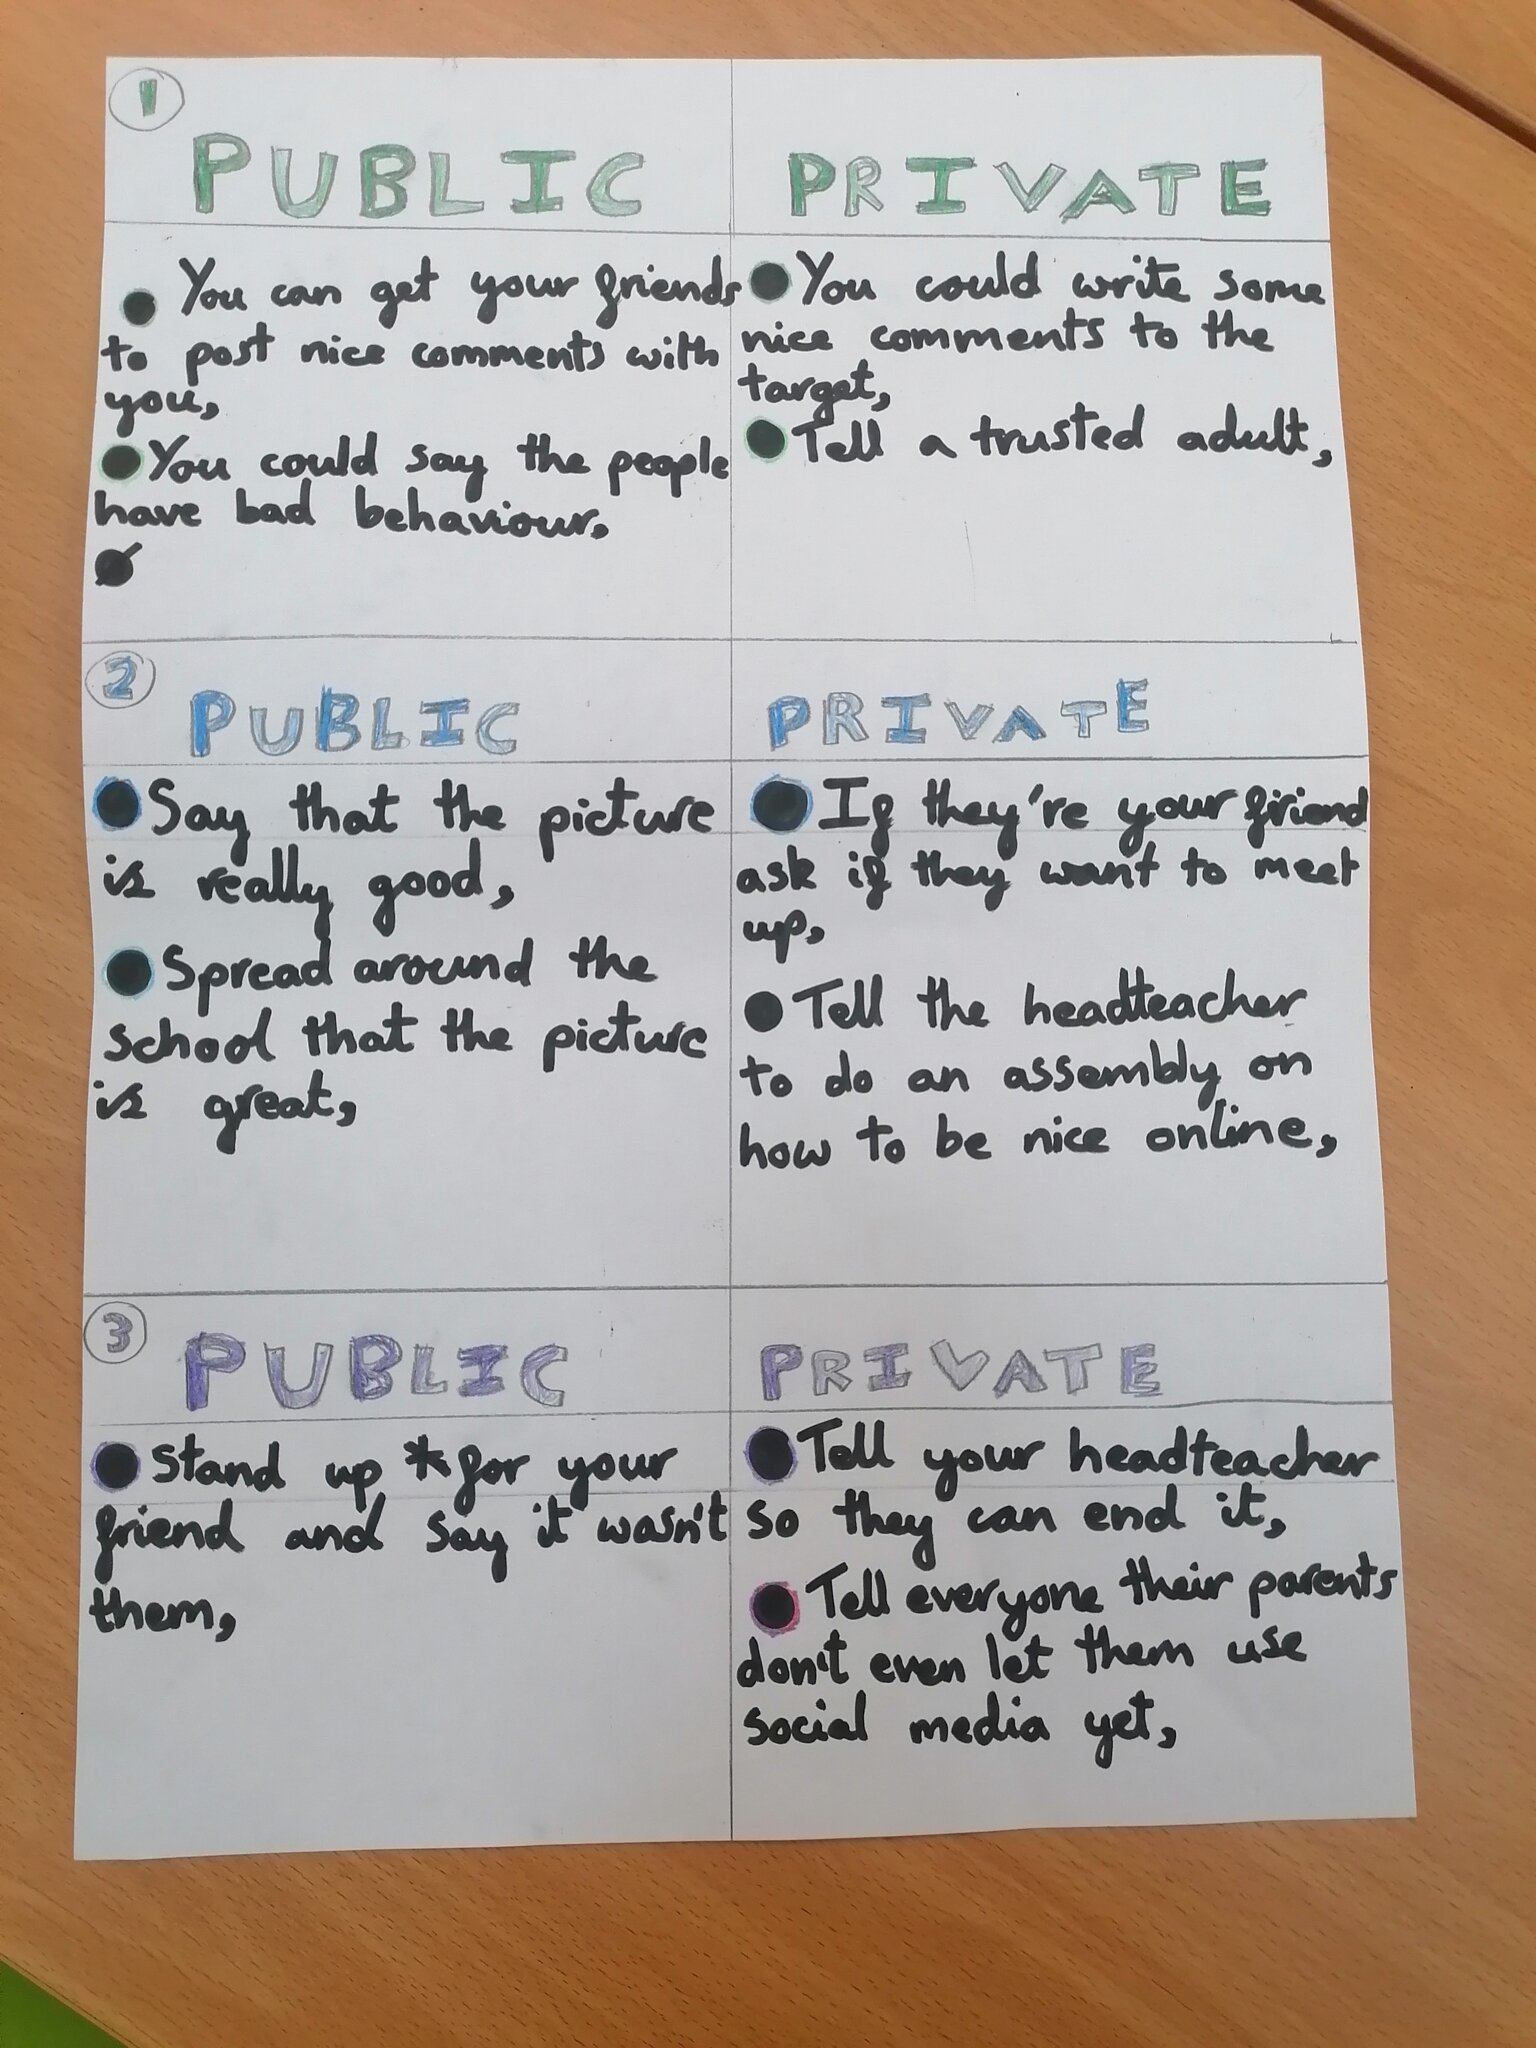 1
PUBLIC
PRIVATE
● You can get your friends
to post nice comments with
you,
● You could say the people
have bad behaviour,
● You could write some
nice comments to the
target,
● Tell a trusted adult,
2
PUBLIC
PRIVATE
● Say that the picture
is really good,
● Spread around the
school that the picture
is great,
● If they're your friend
ask if they want to meet
up,
● Tell the headteacher
to do an assembly on
how to be nice online,
3
PUBLIC
PRIVATE
● Stand up * for your
friend and say it wasn't
them,
● Tell your headteacher
so they can end it,
● Tell everyone their parents
don't even let them use
social media yet,